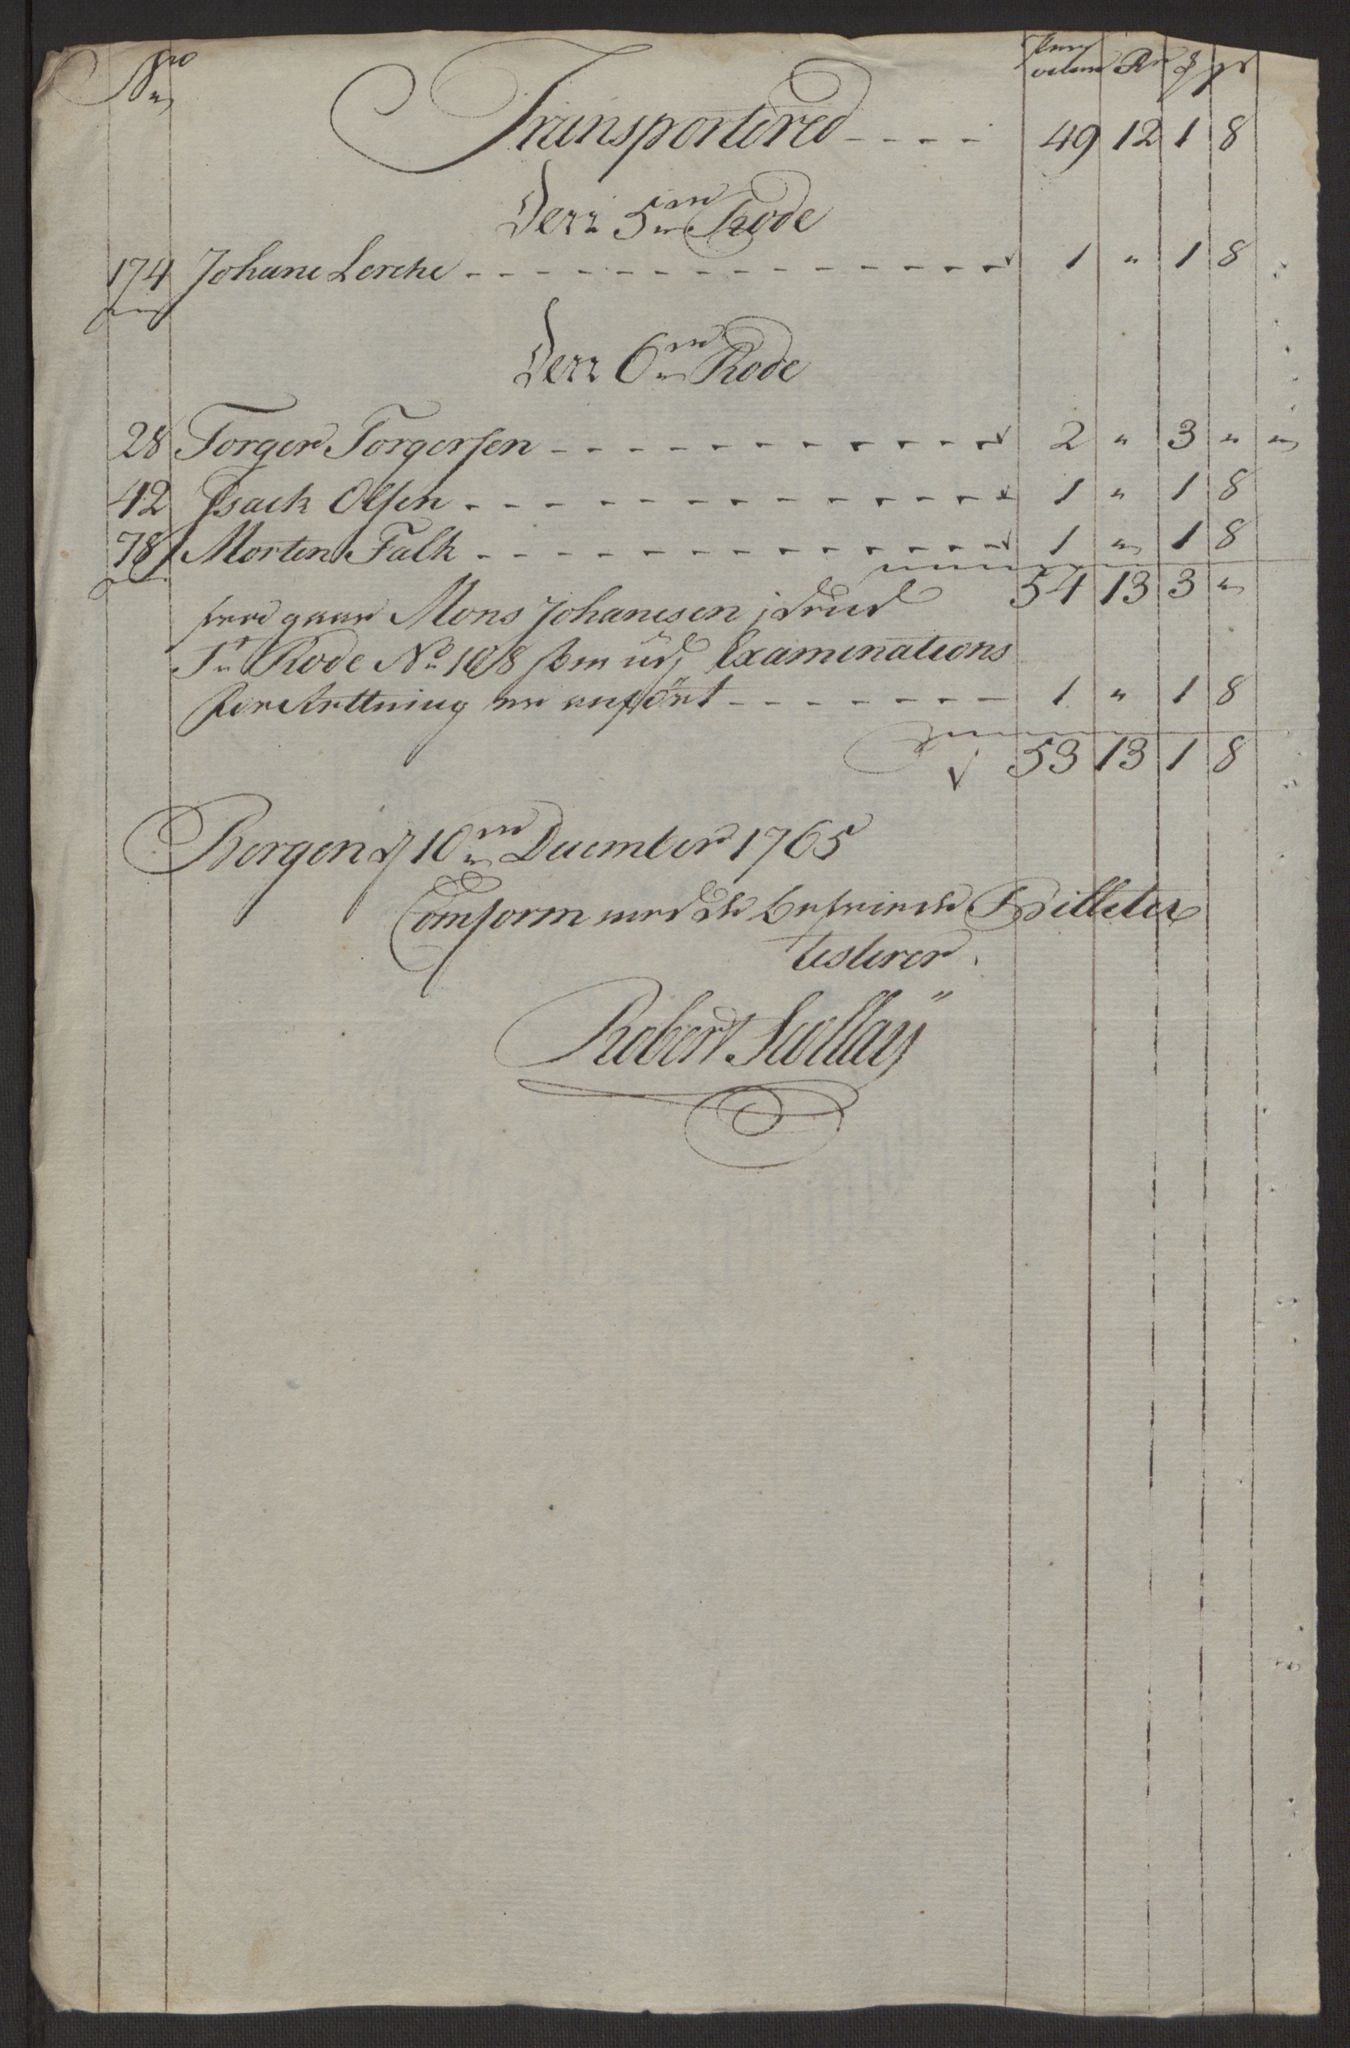 No Rdr
Transportered - - - - 49 12 1 8
Den 5te Rode
174 Johane Lerche - - - - 1 " 1 8
Den 6te Rode
28 Torger Torgersen - - - - 2 " 3 "
42 Isack Olsen - - - - 1 " 1 8
78 Morten Falk - - - - 1 " 1 8
54 13 3 "
gaar Mons Johannesen i
1te Rode No 108 som udj Examinations
Forrettning er anført - - - - 1 " 1 8
53 13 1 8
Bergen d 10de December 1765
Conform med de Billeter
testerer
Robert Scollaÿ